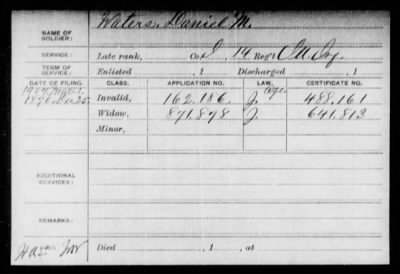 NAME OF SOLDIER: Waters, Daniel M.
SERVICE: Late rank, Co. I, 14 Reg't
TERM OF SERVICE: Enlisted , 1 Discharged , 1
DATE OF FILING. CLASS. APPLICATION NO. LAW. CERTIFICATE NO.
Invalid, 162.186 J. 488.161
1896 Widow, 871.878 J. 641.813
Minor,
ADDITIONAL SERVICES:
REMARKS:
Died , 1 , at